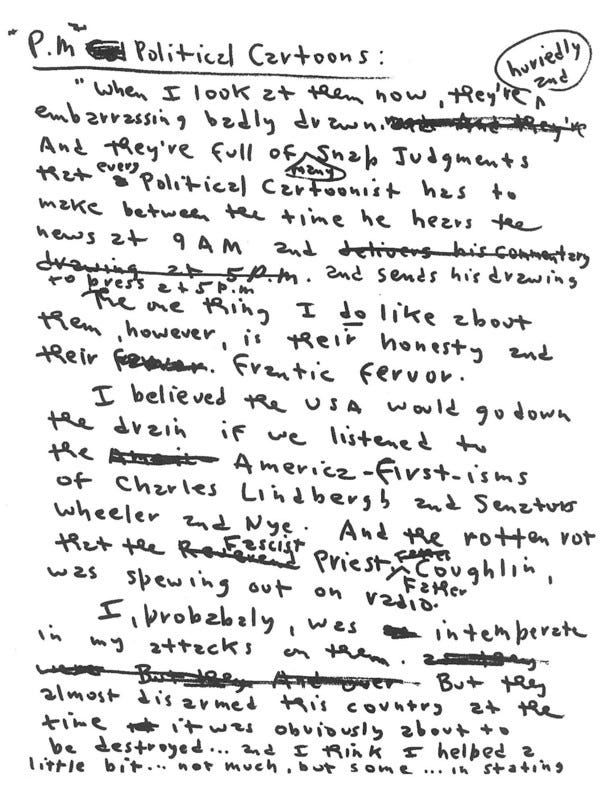 "P.M" Political Cartoons:
hurriedly and
"When I look at them now, they're ^
embarrassing badly drawn. and And they're
And they're full of many Snap Judgments
that every Political Cartoonist has to
make between the time he hears the
news at 9 AM and delivers his commentary
drawing at 5 P.M. and sends his drawing
to press at 5 p.m
The one thing I do like about
them, however, is their honesty and
their fervor. Frantic fervor.
I believed the USA would go down
the drain if we listened to
the America-first-isms
of Charles Lindbergh and Senators
Wheeler and Nye. And the rotten rot
that the Reverend Fascist Priest, Father Coughlin,
was spewing out on radio.
I, probabaly, was intemperate
in my attacks on them. and they
were But they And over But they
almost disarmed this country at the
time it was obviously about to
be destroyed... and I think I helped a
little bit... not much, but some... in stating